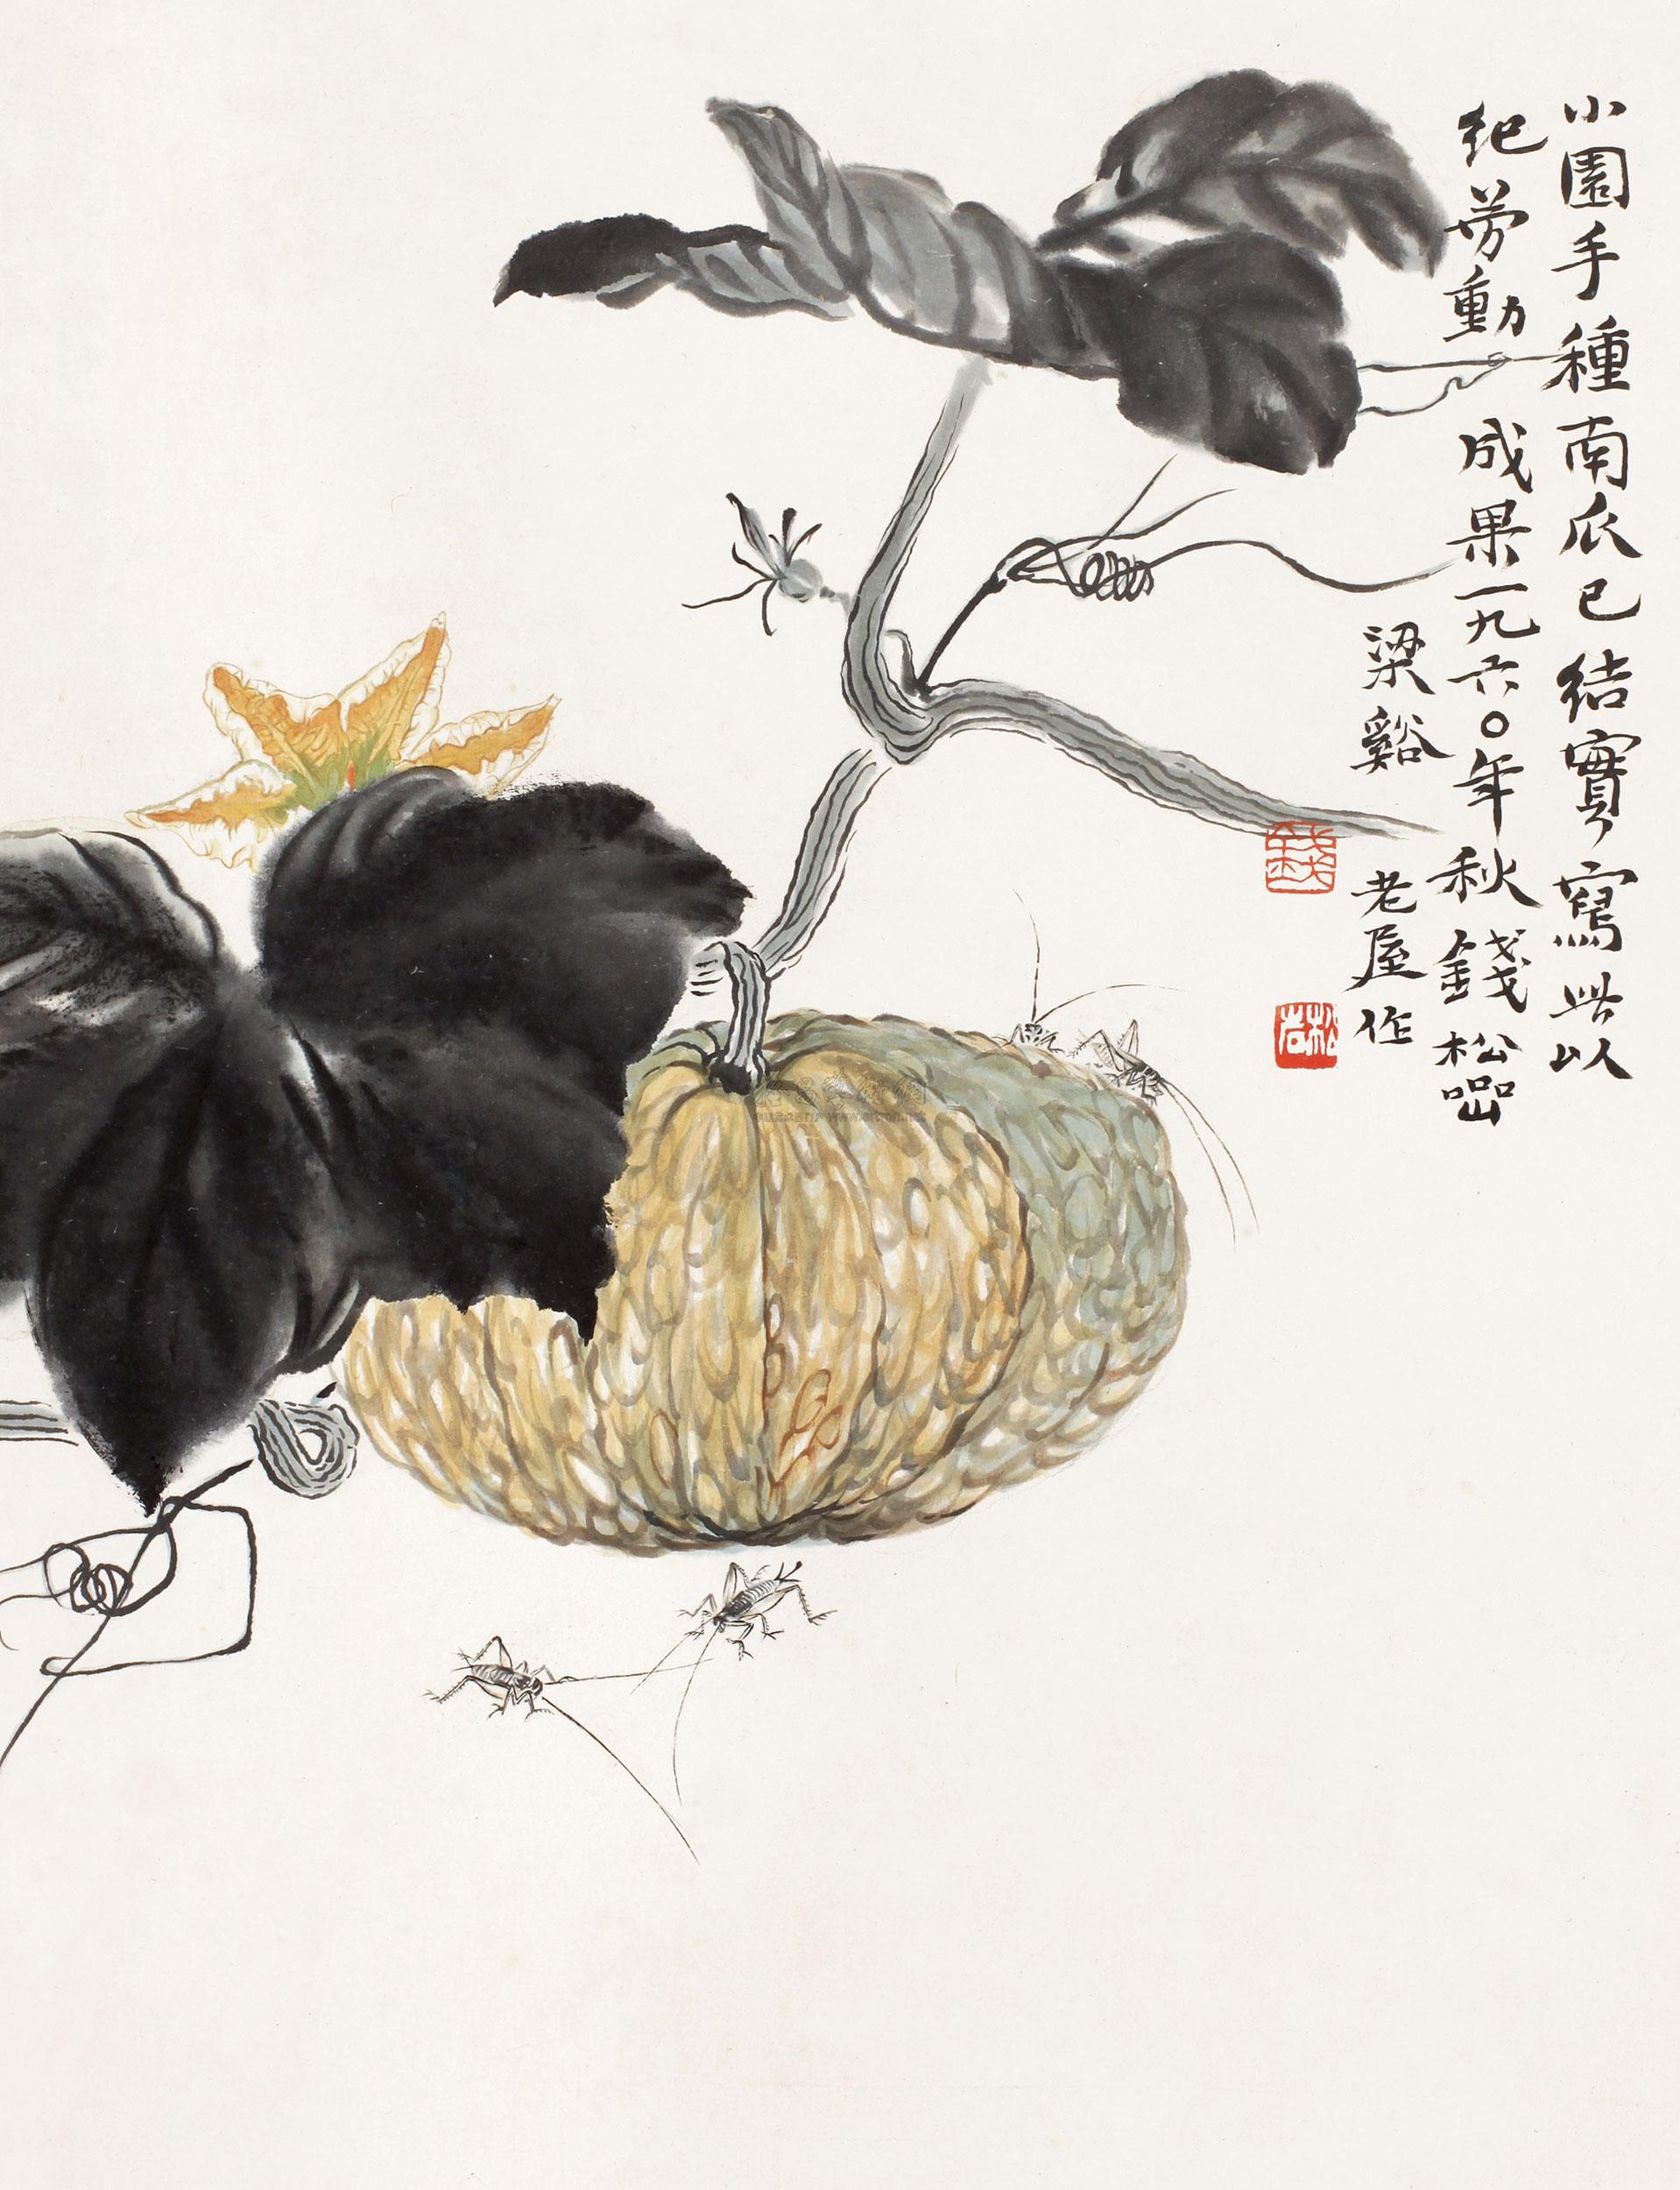 小園手種南瓜已結實寫此以
紀勞動成果一九六〇年秋錢松嵒
梁谿老屋作
錢
松嵒